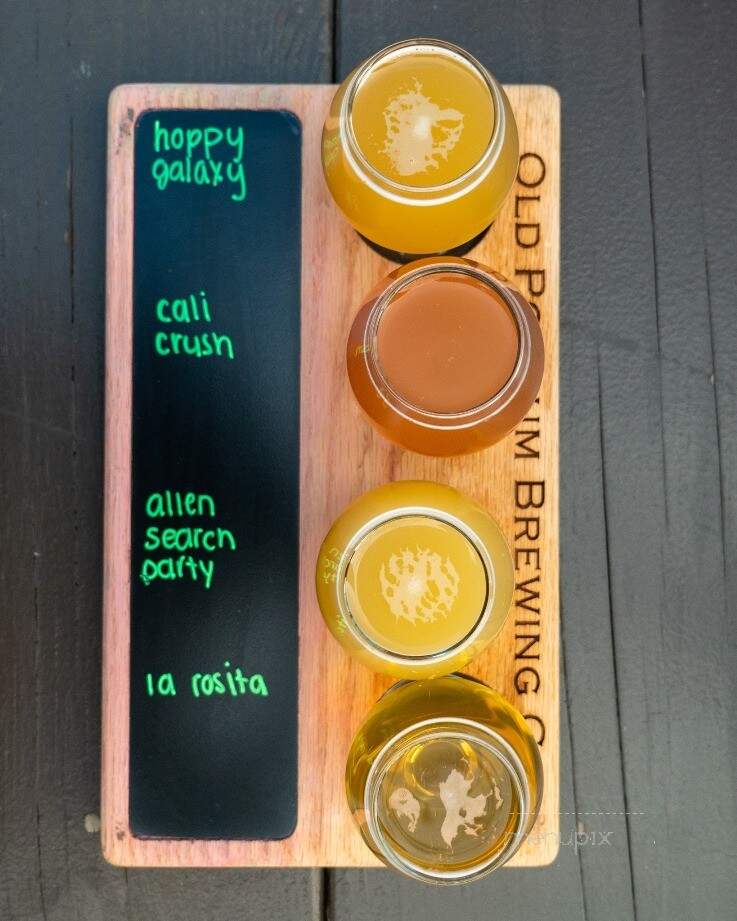 hoppy
galaxy
cali
crush
allen
search
party
la rosita
OLD
BREWING
menupix